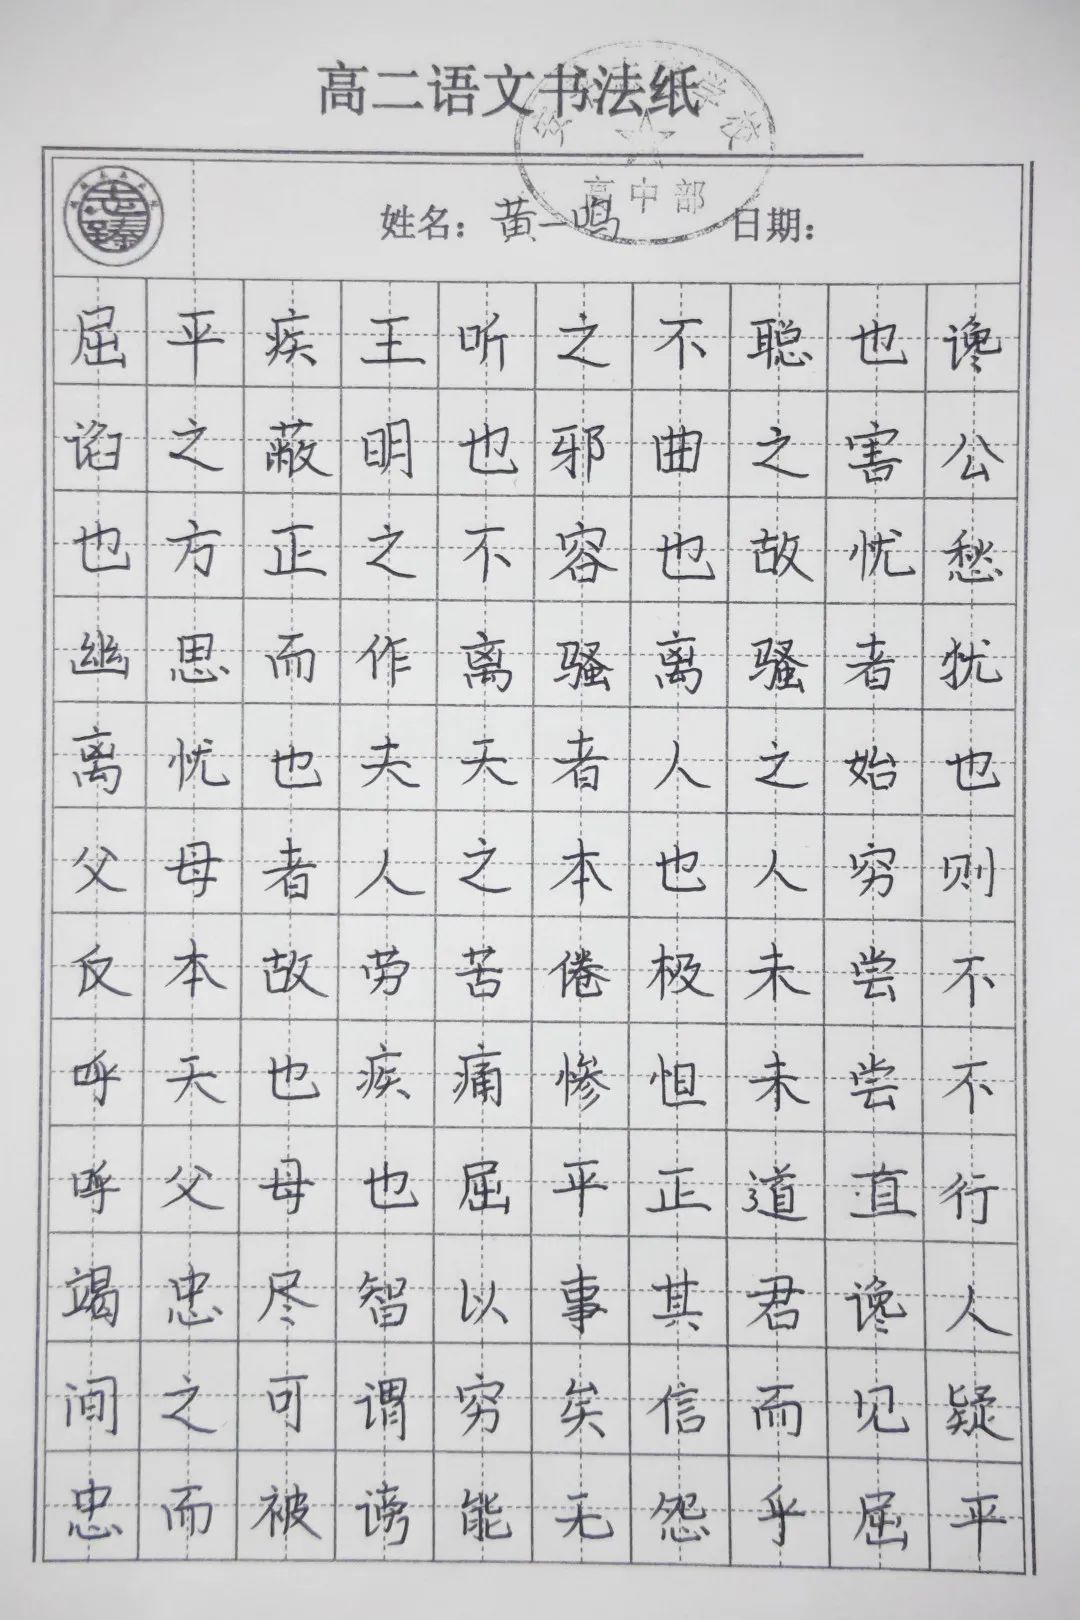 高二语文书法纸
学校
高中部
姓名：黄一鸣 日期：
屈平疾王听之不聪也谗
谄之蔽明也邪曲之害公
也方正之不容也故忧愁
幽思而作离骚离骚者犹
离忧也夫天者人之始也
父母者人之本也人穷则
反本故劳苦倦极未尝不
呼天也疾痛惨怛未尝不
呼父母也屈平正道直行
竭忠尽智以事其君谗人
间之可谓穷矣信而见疑
忠而被谤能无怨乎屈平